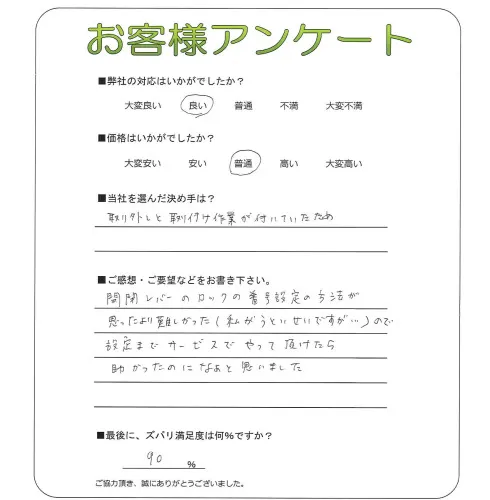 お客様アンケート
■弊社の対応はいかがでしたか?
大変良い 良い 普通 不満 大変不満
■価格はいかがでしたか?
大変安い 安い 普通 高い 大変高い
■当社を選んだ決め手は?
取り外しと取り付け作業が付いていたため
■ご感想・ご要望などをお書き下さい。
開閉レバーのロックの番号設定の方法が
思ったより難しかった(私がうといせいですが…)ので
設定までサービスでやって頂けたら
助かったのになぁと思いました
■最後に、ズバリ満足度は何%ですか?
90 %
ご協力頂き、誠にありがとうございました。